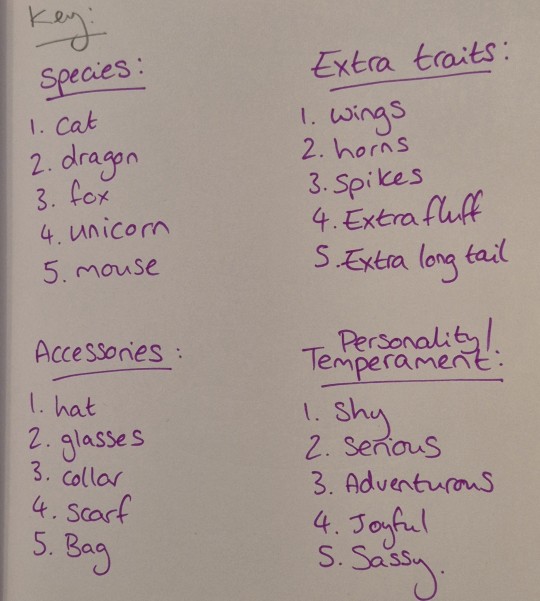 Key:
Species:
1. cat
2. dragon
3. fox
4. unicorn
5. mouse
Extra traits:
1. wings
2. horns
3. spikes
4. Extra fluff
5. Extra long tail
Accessories:
1. hat
2. glasses
3. collar
4. scarf
5. Bag
Personality/
Temperament:
1. Shy
2. Serious
3. Adventurous
4. Joyful
5. Sassy.